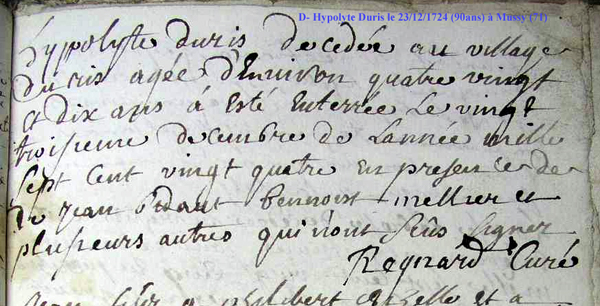 D- Hypolyte Duris le 23/12/1724 (90ans) à Mussy (71)
hypolyte duris decedée au village
du ris agée d'Environ quatre vingt
et dix ans á esté Enterrée Le vingt
troisieme decembre de Lannée mille
sept cent vingt quatre en presence de
jean bennoist mellier et
plusieurs autres qui n'ont sceûs signer
Regnard Curé
philibert et a